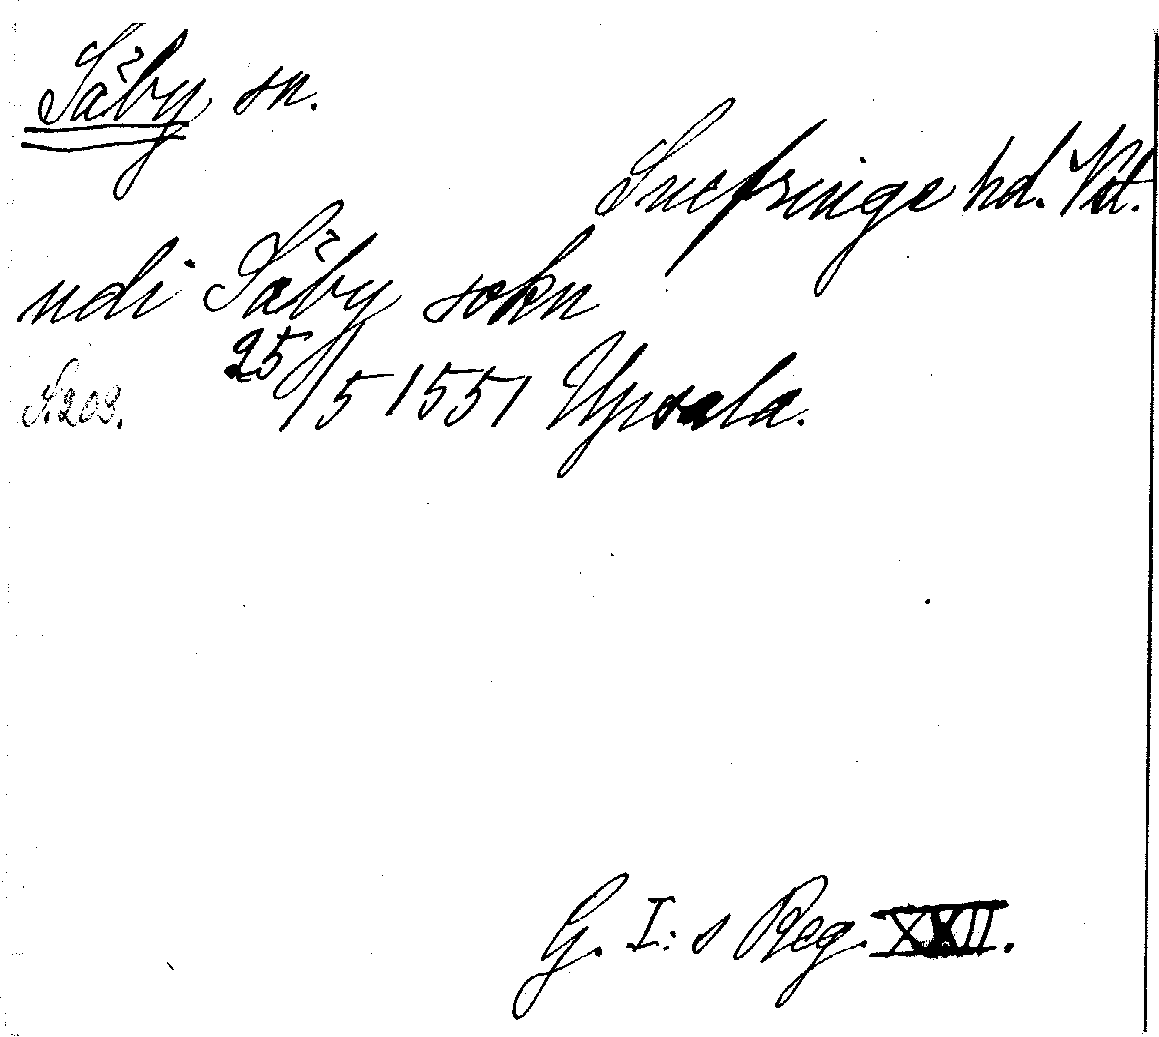 Säby sn.
Snefringe hd. Vstm.
udi Säby sokn
S. 209. 25/5 1551 Upsala.
G. I:s Reg. XXII.